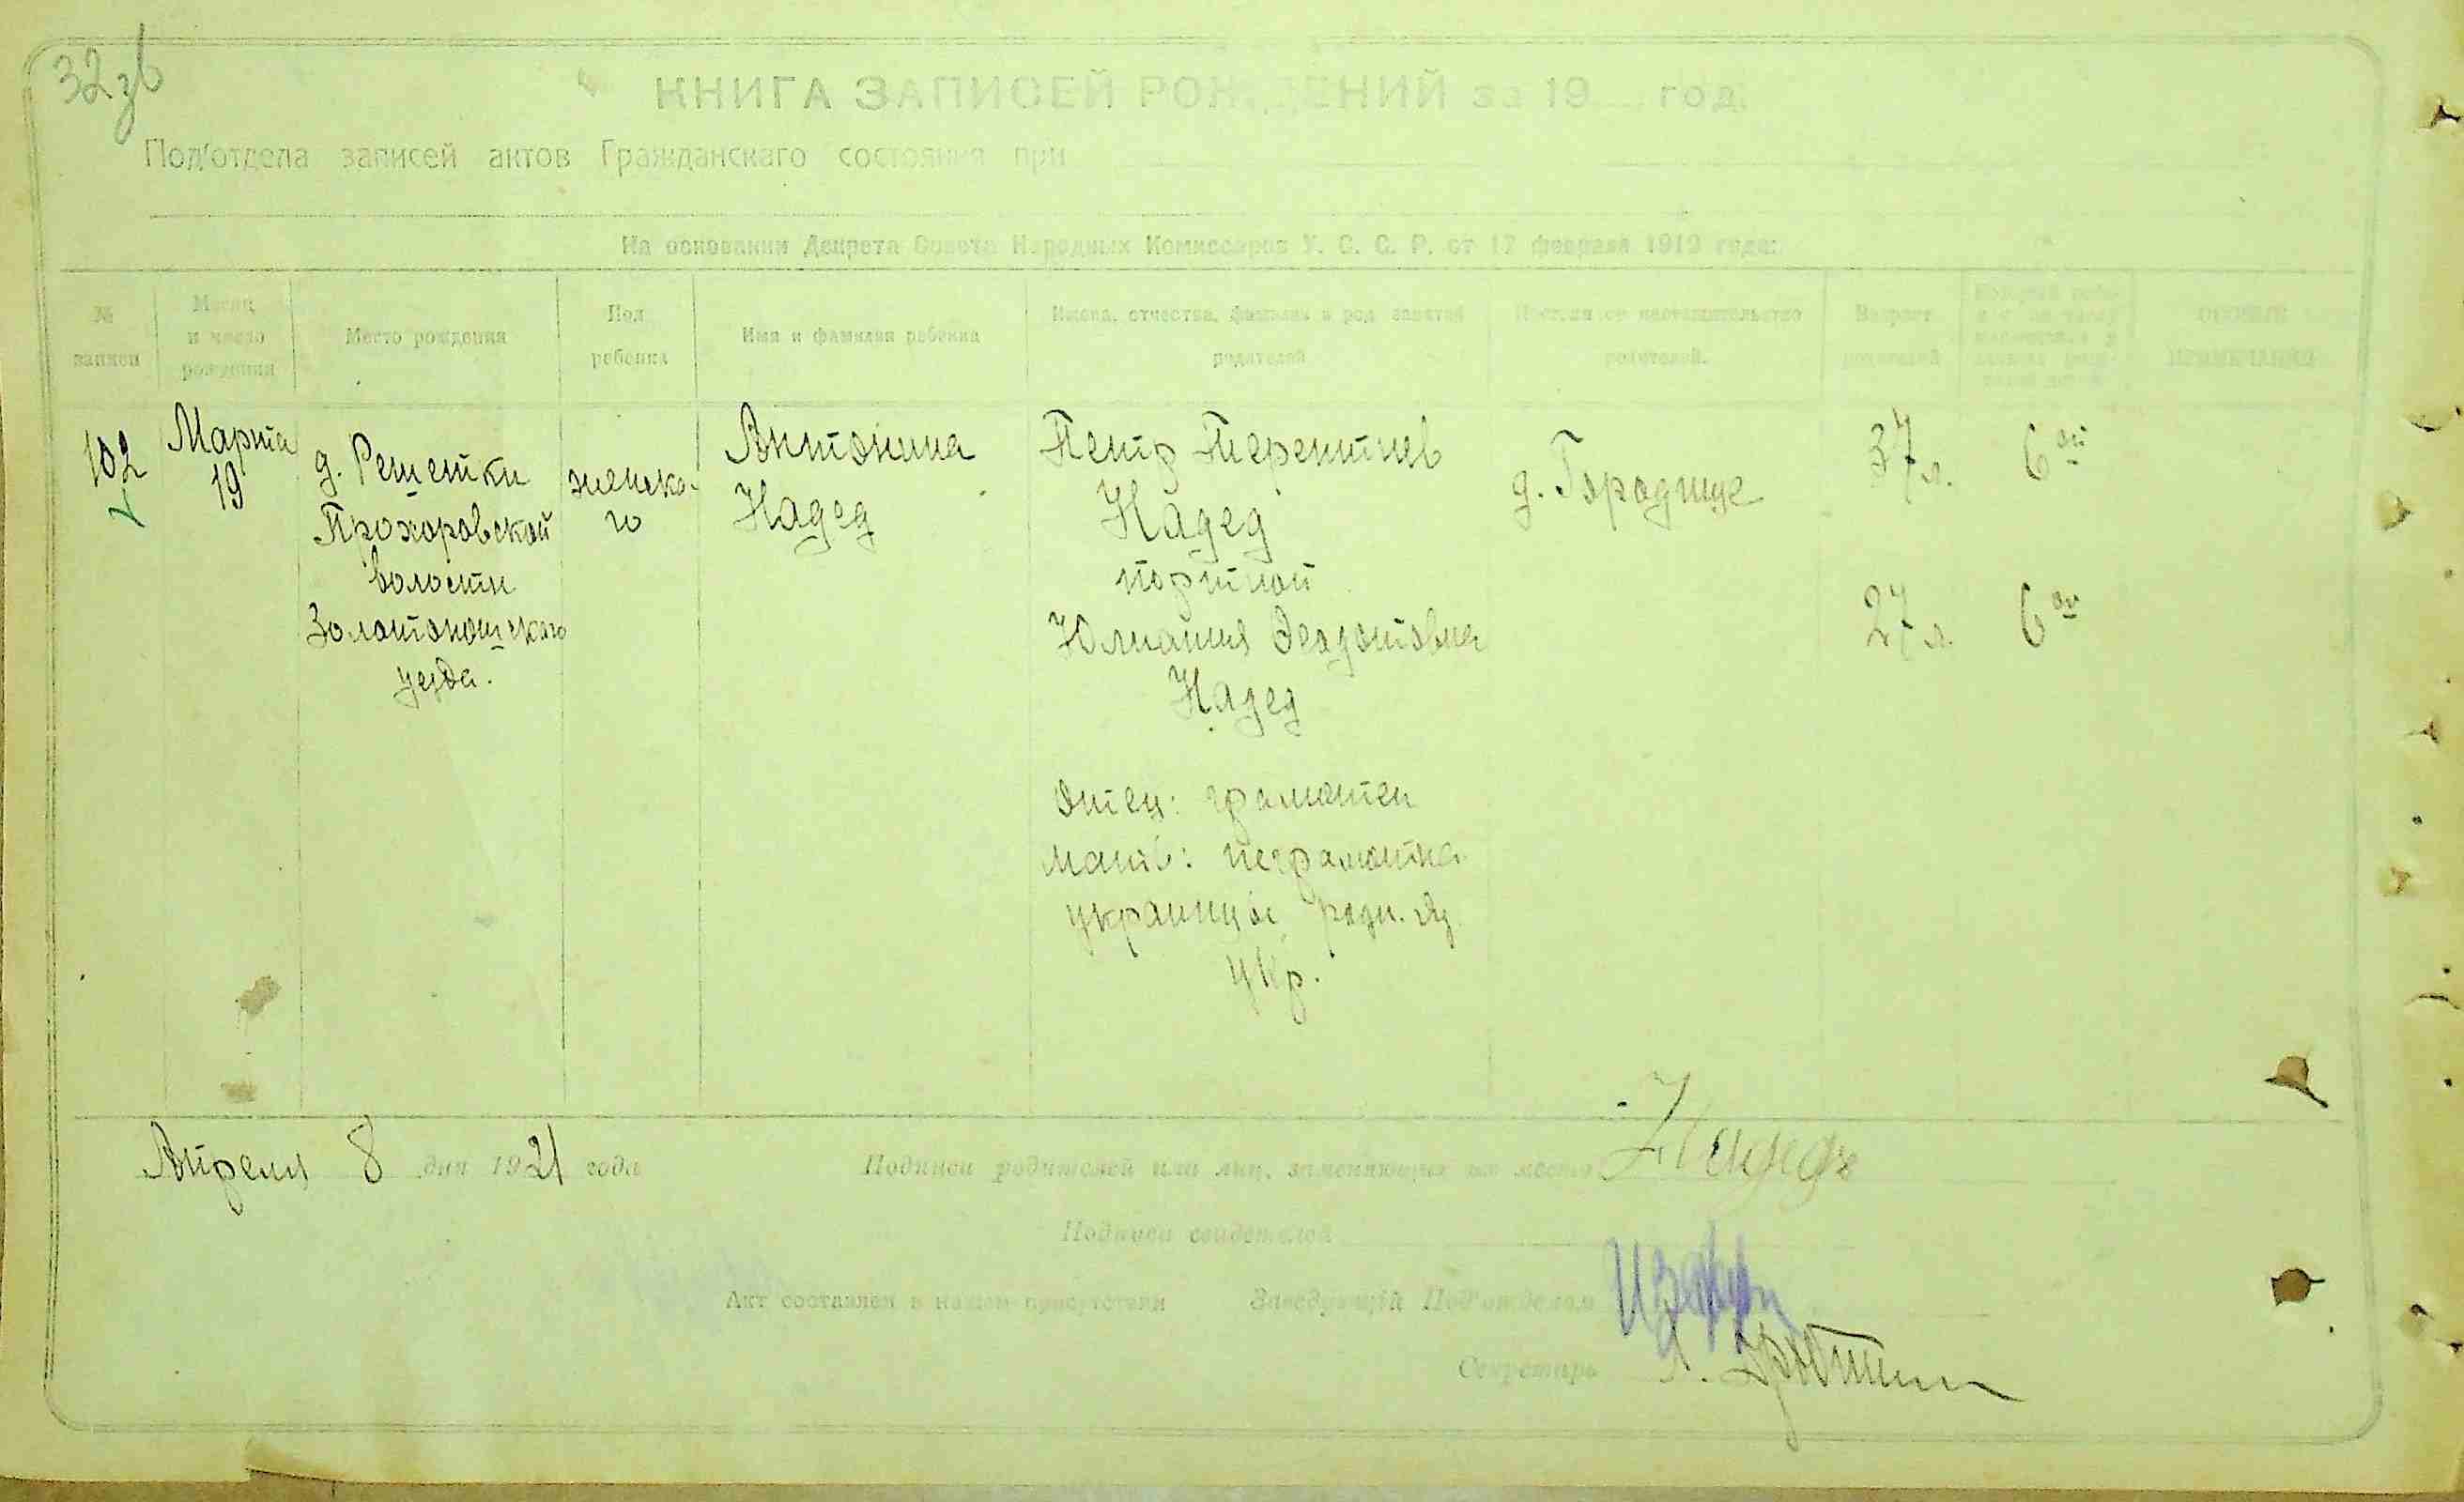 32зв
КНИГА ЗАПИСЕЙ РОЖДЕНИЙ за 19 год.
Под'отдела записей актов Гражданскаго состояния при
На основании Декрета Совета Народных Комиссаров У. С. С. Р. от 17 февраля 1919 года:
№ записи
Месяц и число рождения
Место рождения
Пол ребенка
Имя и фамилия ребенка
Имена, отчества, фамилии и род занятий родителей
местожительство родителей.
Возраст родителей
ОСОБЫЕ ПРИМЕЧАНИЯ
102
Марта
19
д. Решетки
Прохоровской
волости
Золотоношского
уезда.
женско-
го
Антонина
Надед
Петр Терентиев
Надед
портной
Юлиания Феодотовна
Надед
отец: грамотен
мать: неграмотна
украинцы, родн. яз.
укр.
д. Городище
37 л.
27 л.
6ой
6ой
Апреля 8 дня 1921 года
Подписи родителей или лиц, заменяющих их место Надед
Подписи свидетелей
Акт составлен в нашем присутствии
Заведующий Под'отделом
Секретарь